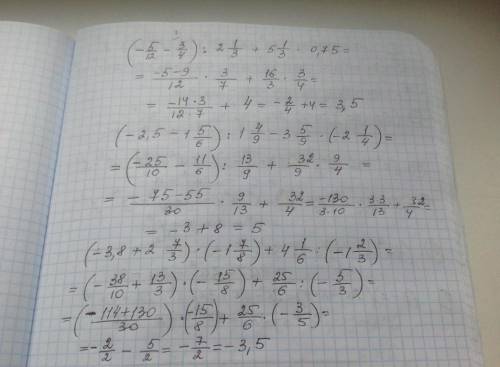 (-5/12 - 3/4) : 2 1/3 + 5 1/3 · 0,75 =
= (-5-9)/12 · 3/7 + 16/3 · 3/4 =
= (-14·3)/(12·7) + 4 = -2/4 + 4 = 3,5
(-2,5 - 1 5/6) : 1 4/9 - 3 5/9 · (-2 1/4) =
= (-25/10 - 11/6) : 13/9 + 32/9 · 9/4 =
= (-75-55)/30 · 9/13 + 32/4 = -130/(3·10) · 33/13 + 32/4 =
= -3 + 8 = 5
(-3,8 + 2 7/3) · (-1 7/8) + 4 1/6 : (-1 2/3) =
= (-38/10 + 13/3) · (-15/8) + 25/6 : (-5/3) =
= ((-114+130)/30) · (-15/8) + 25/6 · (-3/5) =
= -2/2 - 5/2 = -7/2 = -3,5